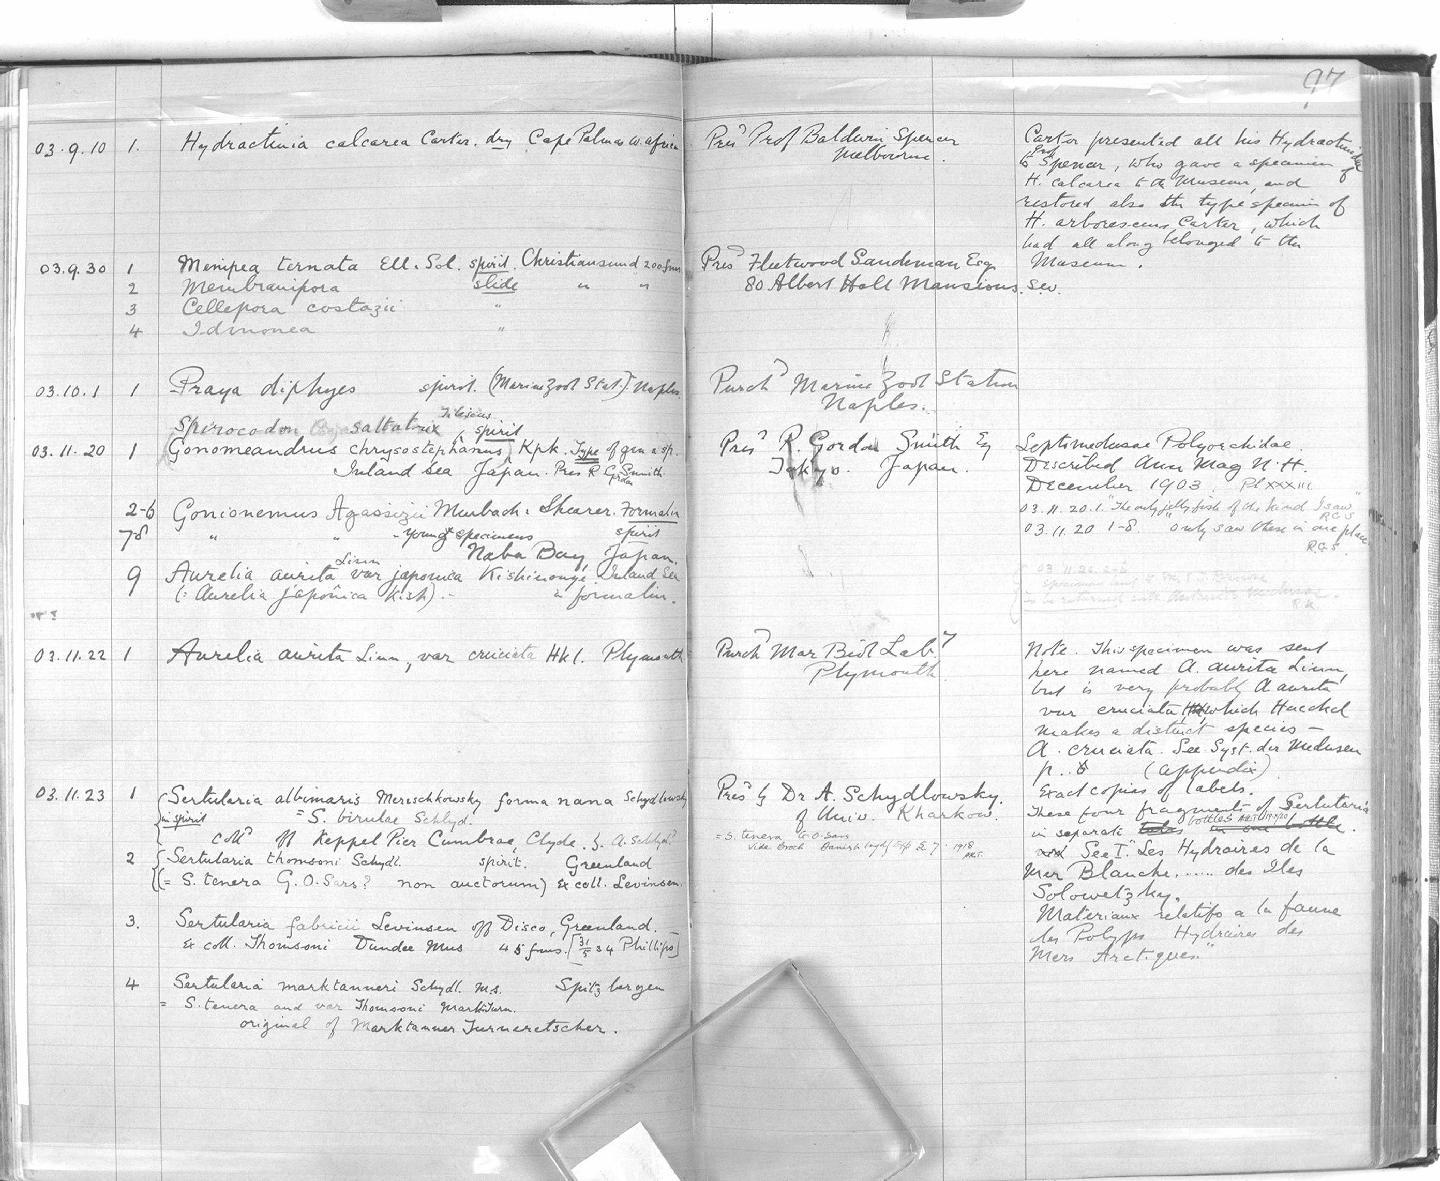 97
03.9.10 1. Hydractinia calcarea Carter. dry Cape Palmas W. Africa
Presd Prof Baldwin Spencer
Melbourne.
Carter presented all his Hydractinidae
to Prof Spencer, who gave a specimen of
H. calcarea to the Museum, and
restored also the type specimen of
H. arborescens Carter, which
had all along belonged to the
Museum.
03.9.30 1 Menipea ternata Ell. & Sol. spirit. Christiansund 200 fms
2 Membranipora slide " "
3 Cellepora costazii "
4 Idmonea "
Presd Fleetwood Sandeman Esq
80 Albert Hall Mansions. S.W.
03.10.1 1 Praya diphyes spirit. (Marine Zool Stat.) Naples.
Purchd Marine Zool Station
Naples.
Spirocodon saltatrix Tilesius, spirit
03.11.20 1 (Gonomeandrus chrysostephanus) Kpk. Type of gen & sp.
Inland sea Japan. Pres R Gordon Smith
Presd R. Gordon Smith Esq
Tokyo. Japan.
Leptomedusae Polyorchidae.
Described Ann Mag N.H.
December 1903. Pl XXXIII
03.11.20.1. "The only jellyfish of the kind I saw"
R.G.S
03.11.20 1-8 only saw these in one place
R.G.S.
2-6 Gonionemus Agassizii Murbach & Shearer. Formalin
7-8 " " - young specimens spirit
Nabu Bay, Japan.
9 Aurelia aurita Linn var japonica Kishinouye Inland Sea
(= Aurelia japonica Kish) .. in formalin.
03.11.20 2-6
R.K
03.11.22 1 Aurelia aurita Linn, var cruciata Hkl. Plymouth
Purchd Mar Biol Laby
Plymouth.
Note. This specimen was sent
here named A. aurita Linn,
but is very probably A aurita
var cruciata, which Haeckel
makes a distinct species -
A. cruciata. See Syst. der Medusen
p. .. 8 (appendix)
03.11.23 1 Sertularia albimaris Mereschkowsky forma nana Schydlowsky
in spirit = S. birulae Schyd.
colld off Keppel Pier Cumbrae, Clyde. by A. Schydy
Presd by Dr A. Schydlowsky.
of Univ. Kharkow.
= S. tenera G.O. Sars
Exact copies of labels.
These four fragments of Sertularia
in separate tubes bottles in one bottle.
See I. "Les Hydraires de la
Mer Blanche..... des Iles
Solowetzky.
Materiaux relatifs a la faune
des Polyps Hydraires des
Mers Arctiques."
2 Sertularia thomsoni Schydl. spirit. Greenland
(= S. tenera G.O. Sars? non auctorum) Ex coll. Levinsen.
3. Sertularia fabricii Levinsen off Disco, Greenland.
Ex coll. Thomsoni Dundee Mus 45 fms. [31/5 34 Phillips]
4 Sertularia marktanneri Schydl. M.s. Spitzbergen
= S. tenera and var Thomsoni Mark. Turn.
original of Marktanner Turneretscher.